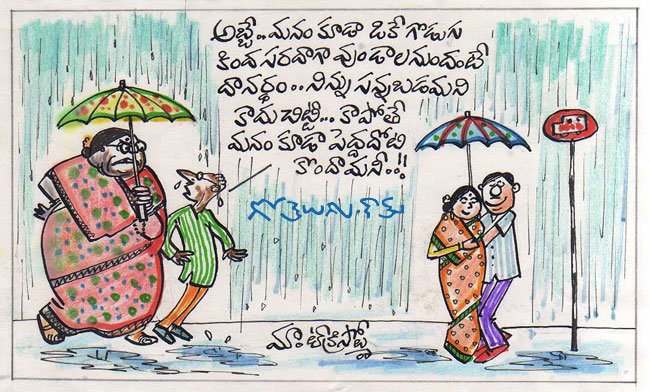 అబ్బే.. మనం కూడా ఒకే గొడుగు
కింద సరదాగా వుండాలనుందంటే
దానర్థం.. నిన్ను సన్నబడమని
కాదు చిట్టీ... కాపోతే
మనం కూడా పెద్దదోటి
కొందామనీ..!!